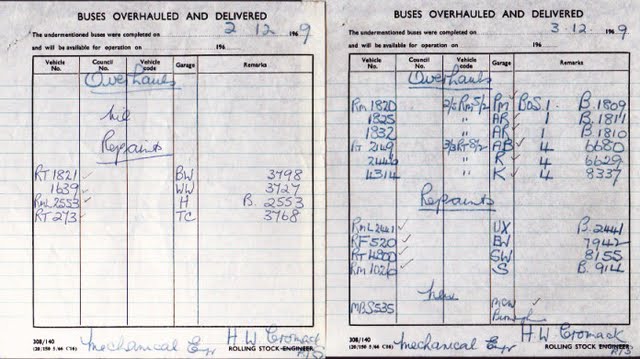 BUSES OVERHAULED AND DELIVERED
The undermentioned buses were completed on 2 . 12 1969
and will be available for operation on 196
Vehicle No. Council No. Vehicle code Garage Remarks
Overhauls
Nil
Repaints
RT 1821 ✓ BW 3798
1639 ✓ WW 3727
RML 2553 ✓ H B. 2553
RT 273 ✓ TC 3768
308/140
Mechanical Egr H. W. Cromack
ROLLING STOCK ENGINEER
BUSES OVERHAULED AND DELIVERED
The undermentioned buses were completed on 3 . 12 . 1969
and will be available for operation on 196
Vehicle No. Council No. Vehicle code Garage Remarks
Overhauls
RM 1820 2/5 RM 5/2 RM ✓ BOS. 1 B. 1809
1825 " AR ✓ 1 B. 1811
1832 " AR ✓ 1 B. 1810
RT 2149 3/3 RT 8/2 AB ✓ 4 6680
2446 " K ✓ 4 6629
4314 " K ✓ 4 8337
Repaints
RML 2441 ✓ UX B. 2441
RF 520 ✓ BW 7942
RT 4800 ✓ SW 8155
RM 1026 ✓ S B. 914
New
MBS 535 MCW ✓
308/140
Mechanical Egr H. W. Cromack
ROLLING STOCK ENGINEER